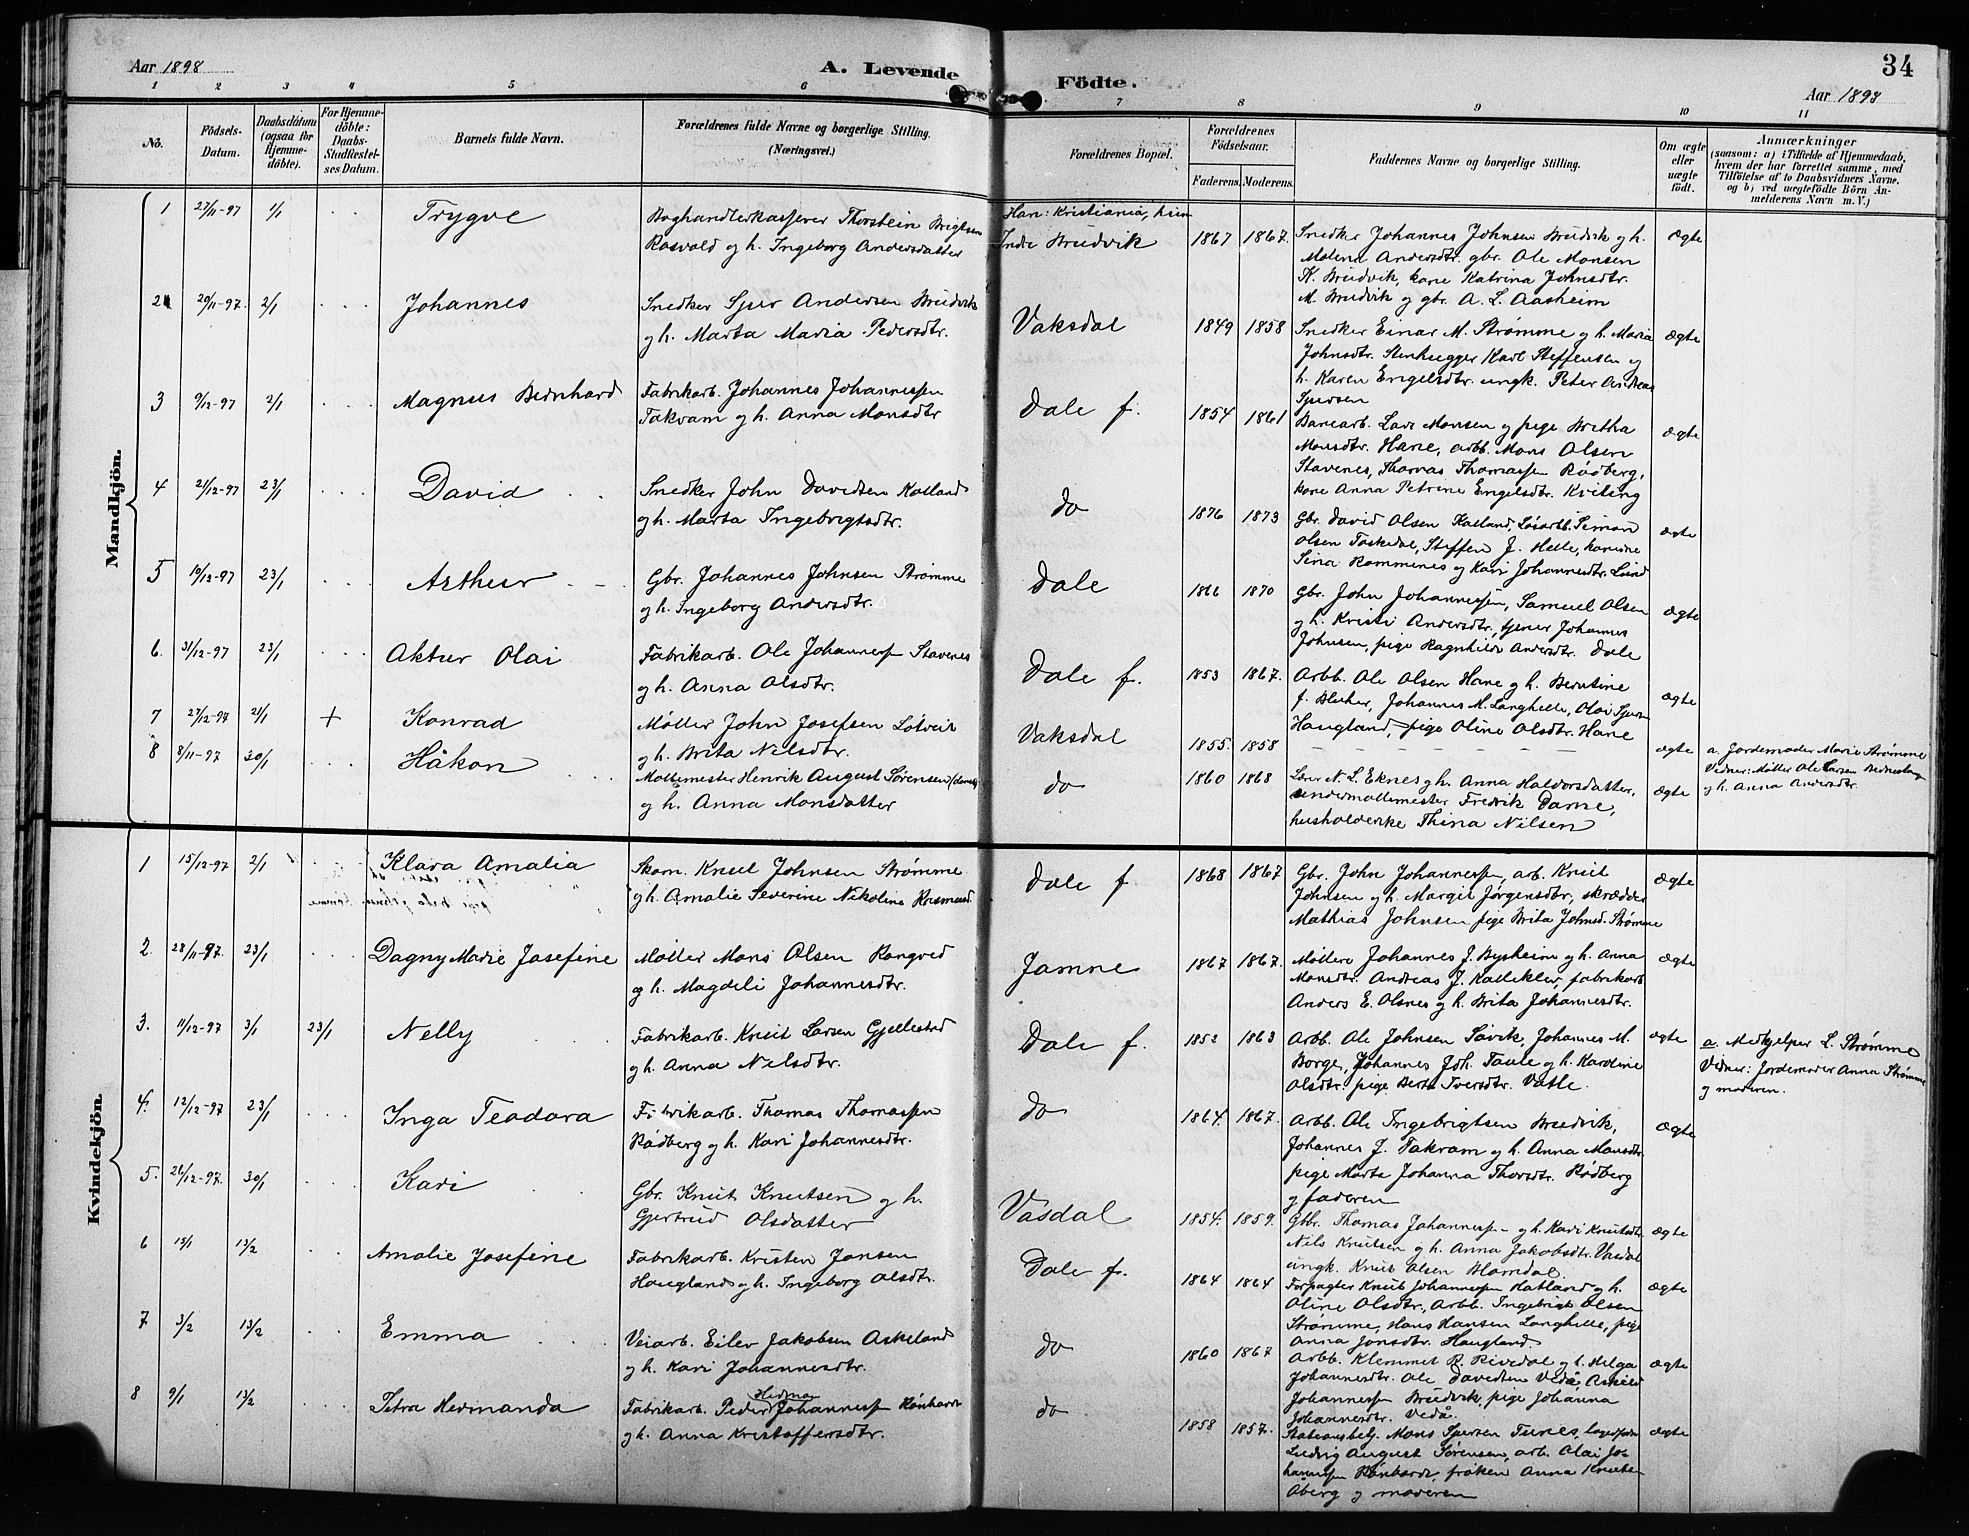 Aar 1898
A. Levende Födte.
34
Aar 1898
1 2 3 4 5 6 7 8 9 10 11
No.
Födsels-Datum.
Daabsdatum (ogsaa for Hjemmedöbte).
For Hjemmedöbte: Daabs-Stadfæstelses Datum.
Barnets fulde Navn.
Forældrenes fulde Navne og borgerlige Stilling. (Næringsvei.)
Forældrenes Bopæl.
Forældrenes Födselsaar.
Faderens. Moderens.
Faddernes Navne og borgerlige Stilling.
Om ægte eller uægte födt.
Anmærkninger
(saasom: a) i Tilfælde af Hjemmedaab, hvem der har forrettet samme, med Tilföielse af to Daabsvidners Navne, og b) ved uægtefödte Börn Anmelderens Navn m. V.)
Mandkjön.
1 27/11-97 1/1 Trygve
Boghandlerkasserer Thorstein Brigtsen
Rosvold og h. Ingeborg Andersdatter
Han: Kristiania, hun
Indre Bruvik 1867 1867.
Snedker Johannes Johnsen Bruvik og h.
Malene Andersdtr. gbr. Ole Monsen
K. Bruvik, kone Katrina Johnsdtr.
M. Bruvik og gbr. A. L. Aasheim
ægte
2 20/11-97. 2/1 Johannes
Snedker Sjur Andersen Bruvik
og h. Marta Maria Pedersdtr.
Vaksdal 1849 1858
Snedker Einar M. Strømme og h. Maria
Johnsdtr. Stenhugger Karl Steffensen og
h. Karen Engelsdtr. ungk. Peter Andreas
Sjursen
ægte
3 9/12-97 2/1 Magnus Bernhard
Fabrikarb. Johannes Johannessen
Takvam og h. Anna Monsdtr
Dale f. 1854 1861
Banearb. Lars Monsen og pige Bretha
Monsdtr. Hane, arbb. Mons Olsen
Stavenes, Thomas Thomassen Rödberg,
kone Anna Petrine Engelsdtr. Kviting
ægte
4 21/12-97 23/1 David
Snedker John Davidsen Kalland
og h. Marta Ingebrigtsdtr.
do 1876 1873
Gbr. David Olsen Kalland, Løsarbb. Simon
Olsen Toskedal, Steffen J. Helle, konerne
Sina Rommenes og Kari Johannesdtr. Lund
ægte
5 10/12-97 23/1 Arthur
Gbr. Johannes Johnsen Strømme
og h. Ingeborg Andersdtr.
Dale 1866 1870
Gbr. John Johannessen, Samuel Olsen
og h. Kristi Andersdtr., tjener Johannes
Johnsen, pige Ragnhilde Andersdtr. Dale
ægte
6. 31/12-97 23/1 Aktur Olai
Fabrikarb. Ole Johannessen Stavenes
og h. Anna Olsdtr.
Dale f. 1853 1867.
Arbb. Ole Olsen Hane og h. Berntine
f. Bleker, Johannes M. Langhelle, Olai Sjursen
Haugland, pige Oline Olsdtr. Hane
ægte
7 27/12-97 21/1 + Konrad
Møller John Josefsen Lotveit
og h. Brita Nilsdtr.
Vaksdal 1855. 1858
ægte
a. Jordemoder Marie Strømme
Vidner: Møller Ole Larsen
og h. Anna Andersdtr.
8 8/11-97 30/1 Håkon
Møllemester Henrik August Sørensen (dansk)
og h. Anna Monsdatter
do 1860 1868
Lærer N. L. Eknes og h. Anna Haldorsdatter,
undermøllemester Fredrik Dame,
husholderske Thina Nilsen
ægte
Kvindekjön.
1 15/12-97 2/1 Klara Amalia
Skom. Knut Johnsen Strømme
og h. Amalie Severine Nikoline Rasmusd.
Dale f. 1868 1867
Gbr. John Johannessen, arb. Knut
Johnsen og h. Margit Jørgensdtr., skrædder
Mathias Johnsen pige Brita Johnsd. Strømme
ægte
2 28/11-97. 23/1 Dagny Marie Josefine
Møller Mons Olsen Rongved
og h. Magdeli Johannesdtr.
Jamne 1867 1867.
Møllere Johannes J. Bysheim og h. Anna
Monsdtr. Andreas J. Kallekleiv, fabrikarb.
Anders E. Olsnes og h. Brita Johannesdtr.
ægte
3. 11/12-97 3/1 23/1 Nelly
Fabrikarb. Knut Larsen Gjellestad
og h. Anna Nilsdtr.
Dale f. 1852 1863
Arbb. Ole Johnsen Såvik, Johannes M.
Borge, Johannes Joh. Taule og h. Karoline
Olsdtr. pige Berta Iversdtr. Vatle.
ægte
a. Medhjelper L. Strømme
Vidner: Jordemoder Anna Strømme
og moderen.
4. 12/12-97 23/1 Inga Teodora
Fabrikarb. Thomas Thomassen
Rödberg og h. Kari Johannesdtr.
do 1864. 1867.
Arbb. Ole Ingebrigtsen Bruvik,
Johannes J. Takvam og h. Anna Monsdtr.
pige Marta Johanna Thorsdtr. Rödberg
og faderen
ægte
5. 26/12-97. 30/1 Kari
Gbr. Knut Knutsen og h.
Gjertrud Olsdatter
Vasdal 1854. 1859.
Gbr. Thomas Johannessen og h. Kari Knutsdtr.
Nils Knutsen og h. Anna Jakobsdtr. Vasdal
ungk. Knut Olsen
ægte
6 13/1 13/2 Amalie Josefine
Fabrikarb. Kristen Jansen
Haugland og h. Ingeborg Olsdtr.
Dale f. 1864 1864
Forpagter Knut Johannessen Hatland og h.
Oline Olsdtr., Arbb. Ingebrigt Olsen
Strømme, Hans Hansen Langhelle, pige
Anna Jonsdtr. Haugland
ægte
7 3/2 13/2 Emma
Veiarb. Eilev Jakobsen Askeland
og h. Kari Johannesdtr.
do 1860 1867
Arbb. Klemmet R. Rivedal og h. Helga
Johannesdtr. Ole Davidsen Vedå, Askild
Johannessen Bruvik, pige Johanna
Johannesdtr. Vedå.
ægte
8 9/1 13/2 Petra Hermanda
Fabrikarb. Peder Herman Johannessen Rönhovde
og h. Anna Kristoffersdtr.
do 1858 1857.
Stationsbetj. Mons Sjursen Tunes, lagerform.
Ludvig August Sørensen, arb. Olai Jo-
hannessen Rönhovde, frøken Anna Knutsen
Åberg og moderen
ægte